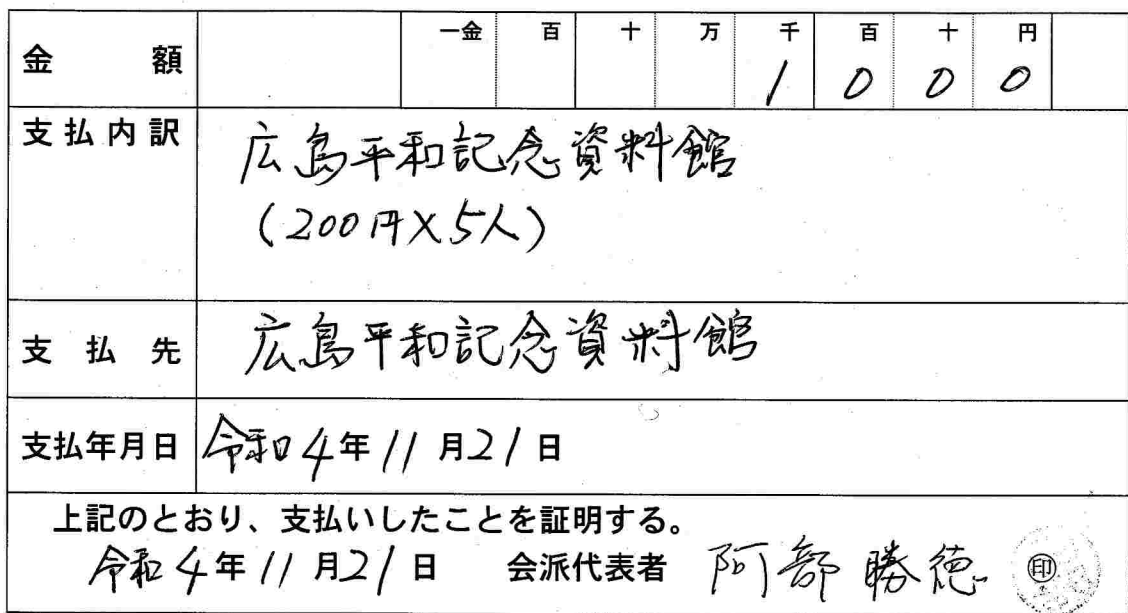 一金 百 十 万 千 百 十 円
金額 1 0 0 0
支払内訳 広島平和記念資料館
(200円×5人)
支払先 広島平和記念資料館
支払年月日 令和4年11月21日
上記のとおり、支払いしたことを証明する。
令和4年11月21日 会派代表者 阿部勝徳 ㊞